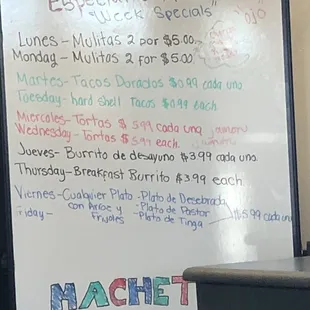 Week Specials
Lunes - Mulitas 2 por $5.00
Monday - Mulitas 2 for $5.00
Martes - Tacos Dorados $0.99 cada uno
Tuesday - hard shell Tacos $0.99 each
Miercoles - Tortas $5.99 cada una jamon
Wednesday - Tortas $5.99 each
Jueves - Burrito de desayuno $3.99 cada uno
Thursday - Breakfast Burrito $3.99 each
Viernes - Cualquier Plato - Plato de Desebrada
con Arroz y - Plato de Pastor $5.99 cada uno
Friday - Frijoles - Plato de Tinga
MACHET